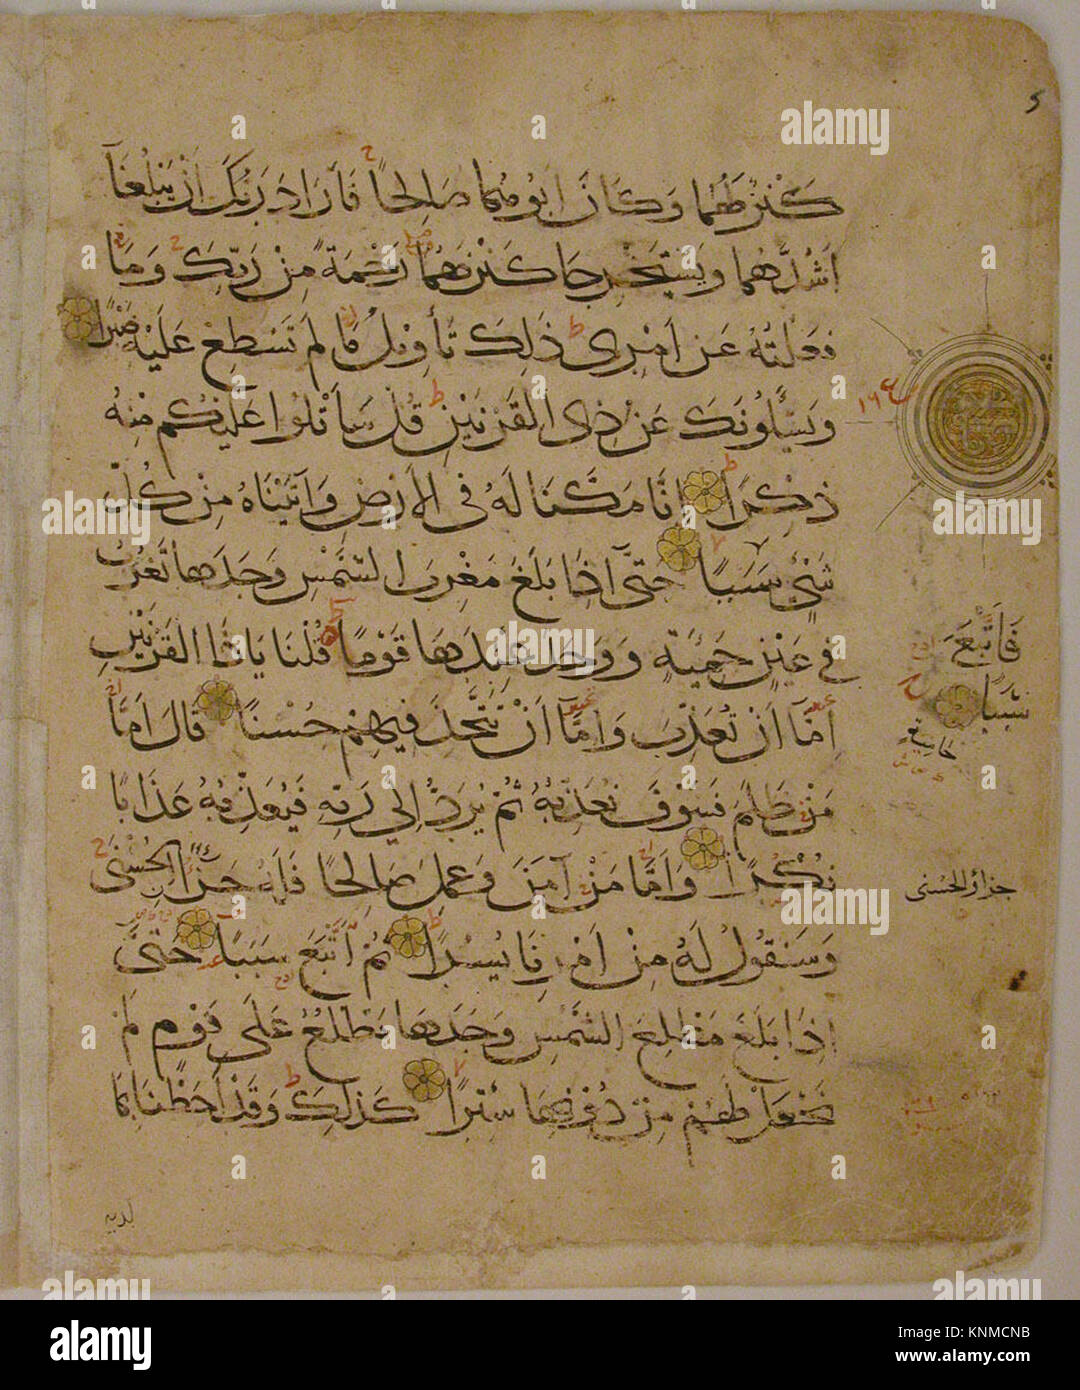 كَنْزٌ لَهُمَا وَكَانَ اَبُوهُمَا صَالِحًا فَاَرَادَ رَبُّكَ اَنْ يَبْلُغَآ
اَشُدَّهُمَا وَيَسْتَخْرِجَا كَنْزَهُمَا رَحْمَةً مِنْ رَبِّكَ وَمَا
فَعَلْتُهُ عَنْ اَمْرِى ذٰلِكَ تَأْوِيلُ مَا لَمْ تَسْطِعْ عَلَيْهِ صَبْرًا
وَيَسْأَلُونَكَ عَنْ ذِى الْقَرْنَيْنِ قُلْ سَأَتْلُوا عَلَيْكُمْ مِنْهُ
ذِكْرًا اِنَّا مَكَّنَّا لَهُ فِى الْاَرْضِ وَآتَيْنَاهُ مِنْ كُلِّ
شَىْءٍ سَبَبًا حَتَّىٓ اِذَا بَلَغَ مَغْرِبَ الشَّمْسِ وَجَدَهَا تَغْرُبُ
فِى عَيْنٍ حَمِئَةٍ وَوَجَدَ عِنْدَهَا قَوْمًا قُلْنَا يَاذَا الْقَرْنَيْنِ
اِمَّآ اَنْ تُعَذِّبَ وَاِمَّآ اَنْ تَتَّخِذَ فِيهِمْ حُسْنًا قَالَ اَمَّا
مَنْ ظَلَمَ فَسَوْفَ نُعَذِّبُهُ ثُمَّ يُرَدُّ اِلٰى رَبِّهِ فَيُعَذِّبُهُ عَذَابًا
نُكْرًا وَاَمَّا مَنْ آمَنَ وَعَمِلَ صَالِحًا فَلَهُ جَزَآءً الْحُسْنٰى
وَسَنَقُولُ لَهُ مِنْ اَمْرِنَا يُسْرًا ثُمَّ اَتْبَعَ سَبَبًا حَتَّىٓ
اِذَا بَلَغَ مَطْلِعَ الشَّمْسِ وَجَدَهَا تَطْلُعُ عَلٰى قَوْمٍ لَمْ
نَجْعَلْ لَهُمْ مِنْ دُونِهَا سِتْرًا كَذٰلِكَ وَقَدْ اَحَطْنَا بِمَا
لديه
١٦
فَاَتْبَعَ
سَبَبًا
جزاؤ الحسنى
alamy stock photo
KNMCNB
www.alamy.com